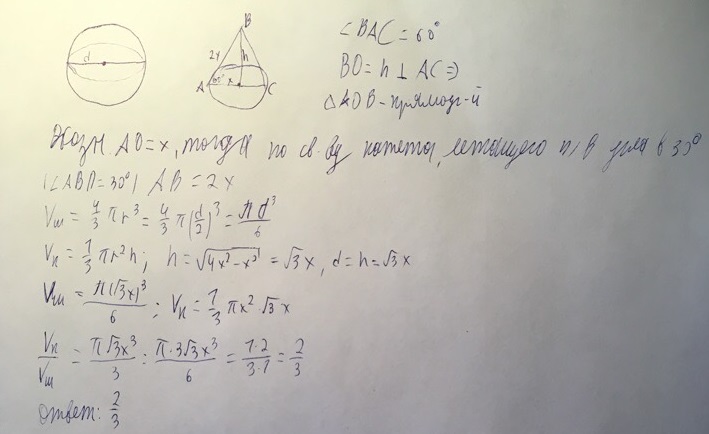 d
B
2x
h
A
60°
x
C
∠BAC = 60°
BO = h ⊥ AC ⇒
△AOB - прямоуг-й
AO = x, тогда по св-ву катета, лежащего п/в угла в 30°
(∠ABO = 30°) AB = 2x
Vш = 4/3 πr³ = 4/3 π(d/2)³ = πd³/6
Vк = 1/3 πr²h; h = √(4x² - x²) = √3x, d = h = √3x
Vш = π(√3x)³/6; Vк = 1/3 πx² √3x
Vк/Vш = π√3x³/3 : π·3√3x³/6 = 1·2/3·1 = 2/3
Ответ: 2/3